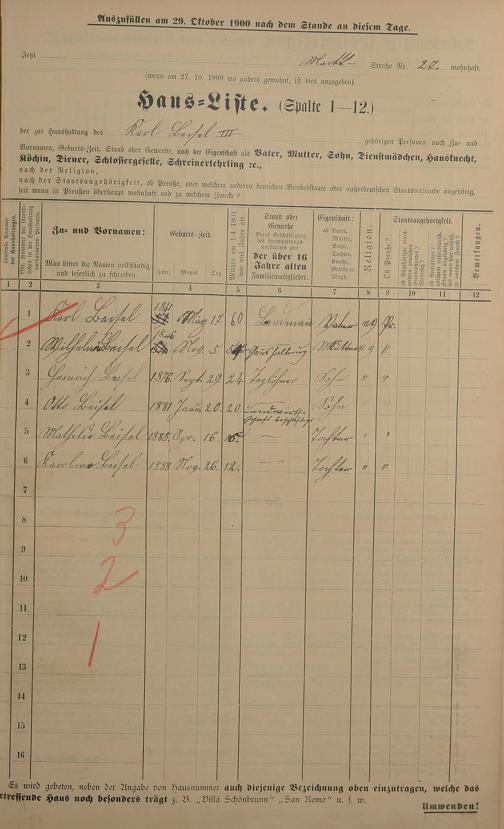 Auszufüllen am 29. Oktober 1900 nach dem Stande an diesem Tage.
Jetzt Markt- Straße Nr. 27. wohnhaft.
(wenn am 27. 10. 1899 wo anders gewohnt, ist dies anzugeben)
Haus-Liste. (Spalte 1—12.)
der zur Haushaltung des Karl Beisel III gehörigen Personen nach Zu- und
Vornamen, Geburts-Zeit, Stand oder Gewerbe, nach der Eigenschaft als Vater, Mutter, Sohn, Dienstmädchen, Hausknecht,
Köchin, Diener, Schlossergeselle, Schreinerlehrling ec.,
nach der Religion,
nach der Staatsangehörigkeit, ob Preuße, oder welchem anderen deutschen Bundesstaate oder außerdeutschen Staatsverbande angehörig,
seit wann in Preußen überhaupt wohnhaft und zu welchem Zwecke?
Zu- und Vornamen:
Man bittet die Namen vollständig
und leserlich zu schreiben.
Geburts-Zeit.
Jahr. Monat. Tag.
Mithin am 1.4.1901
wie viel Jahre alt
Stand oder
Gewerbe
der über 16
Jahre alten
Familienmitglieder.
Eigenschaft:
ob Vater,
Mutter,
Sohn,
Tochter,
Knecht,
Geselle u.
Magd.
Religion.
Staatsangehörigkeit.
Ob Preuße?
Bemerkungen.
1 2 3 4 5 6 7 8 9 10 11 12
1 Karl Beisel 1841 May 17 60. Landmann Vater Pr.
2 Wilhelmine Beisel 1846 Nov. 5 54 Haushaltung Mutter " "
3 Heinrich Beisel 1876 Sept. 29. 24. Taglöhner Sohn " "
4 Otto Beisel 1881 Janu. 20. 20. Landwirth- Sohn " "
schaft beschäftigt
5 Mathilde Beisel 1885. Apr. 16 16. — Tochter " "
6 Karoline Beisel 1888 Nov. 26. 12. — Tochter " "
7
8
3
9
10
2
11
12
1
13
14
15
16
Es wird gebeten, neben der Angabe von Hausnummer auch diejenige Bezeichnung oben einzutragen, welche das
betreffende Haus noch besonders trägt z. B. „Villa Schönbrunn" „San Remo" u. s. w.
Umwenden!